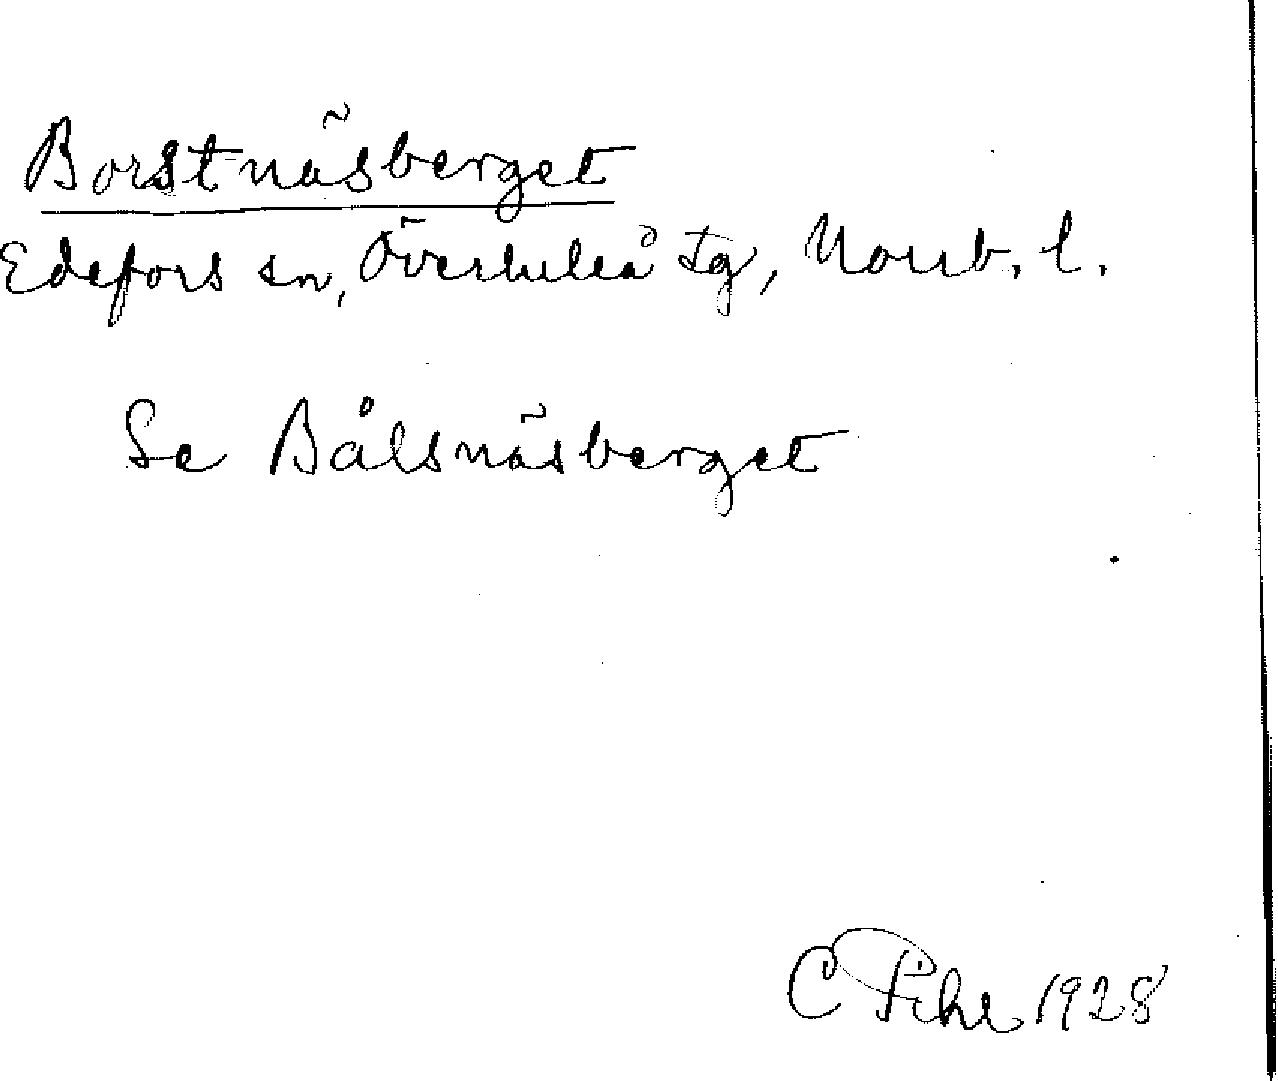 Borstnäsberget
Edefors sn, Överluleå tg, Norrb. l.
Se Bålsnäsberget
C Pihl 1928